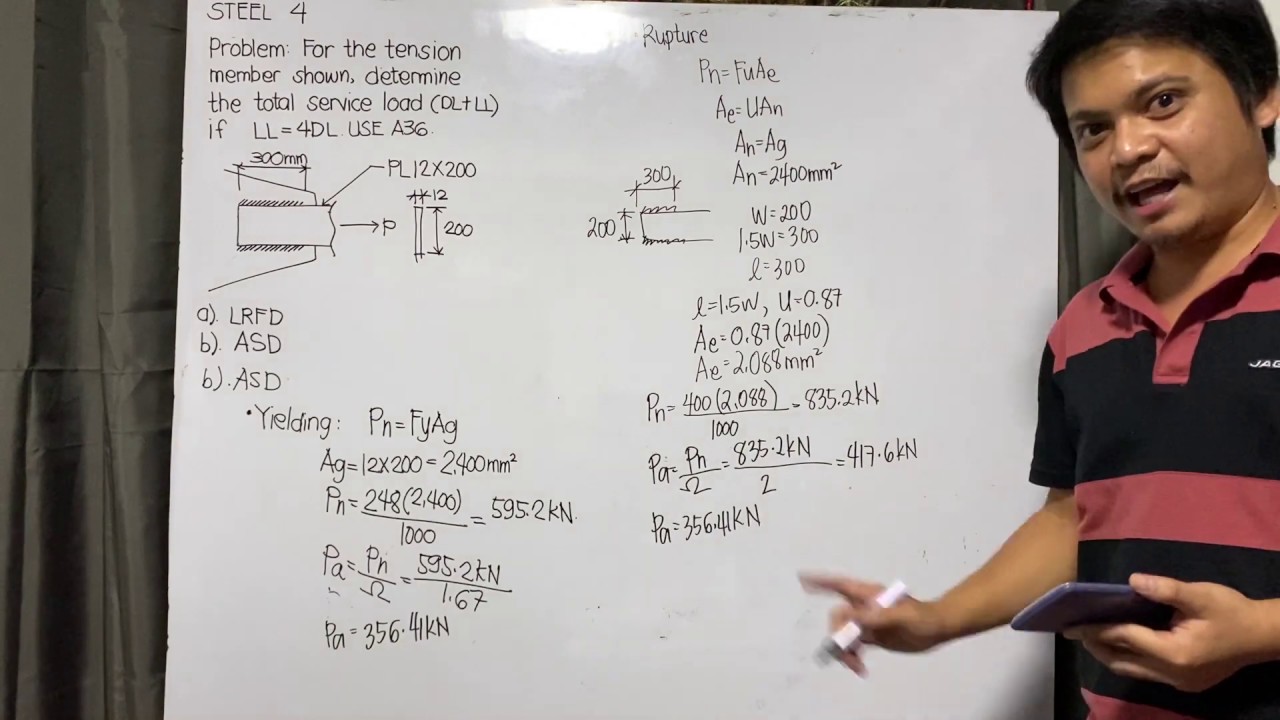 STEEL 4
Problem: For the tension
member shown, determine
the total service load (DL+LL)
if LL=4DL. USE A36.
300mm
PL12X200
12
P
200
a). LRFD
b). ASD
b). ASD
•Yielding: Pn=FyAg
Ag=12X200=2,400mm²
Pn=248(2,400)/1000=595.2kN.
Pa=Pn/Ω=595.2kN/1.67
Pa=356.41kN
Rupture
Pn=FuAe
Ae=UAn
An=Ag
An=2400mm²
300
200
W=200
1.5W=300
l=300
l=1.5W, U=0.87
Ae=0.87(2400)
Ae=2,088mm²
Pn=400(2,088)/1000=835.2kN
Pa=Pn/Ω=835.2kN/2=417.6kN
Pa=356.41kN
JAG